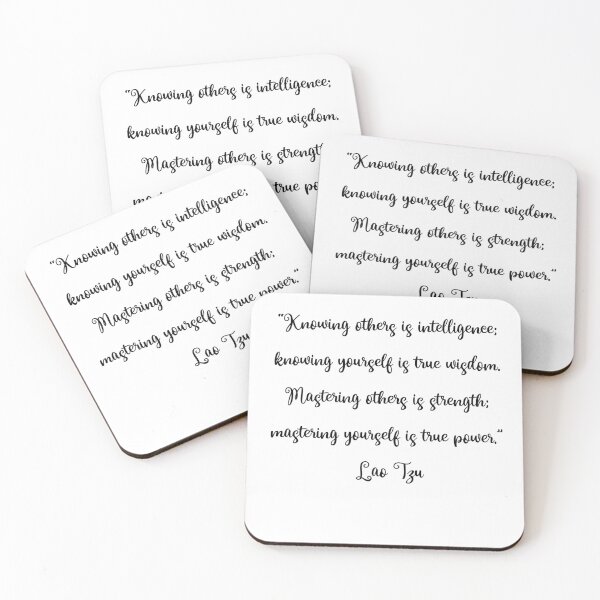 “Knowing others is intelligence;
knowing yourself is true wisdom.
Mastering others is strength
true
“Knowing others is intelligence;
knowing yourself is true wisdom.
Mastering others is strength;
mastering yourself is true power.”
Lao Tzu
“Knowing others is intelligence;
knowing yourself is true wisdom.
Mastering others is strength;
mastering yourself is true power.”
Lao Tzu
“Knowing others is intelligence;
knowing yourself is true wisdom.
Mastering others is strength;
mastering yourself is true power.”
Lao Tzu